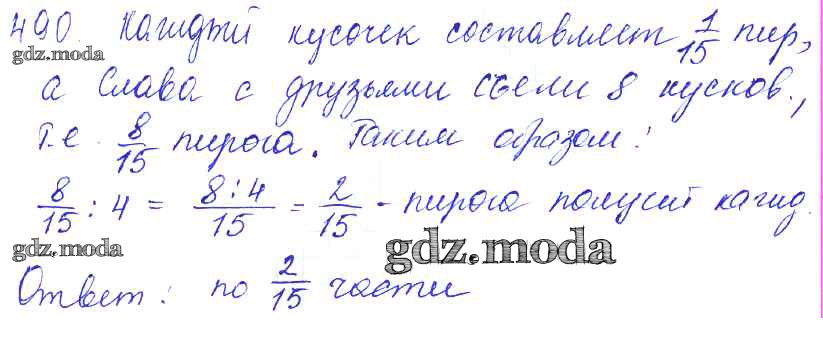 490. Каждый кусочек составляет 1/15 пир,
gdz.moda
а Слава с друзьями съели 8 кусков.,
т.е. 8/15 пирога. Таким образом:
8/15 : 4 = 8:4/15 = 2/15 - пирога получит кажд.
gdz.moda
gdz.moda
Ответ: по 2/15 части